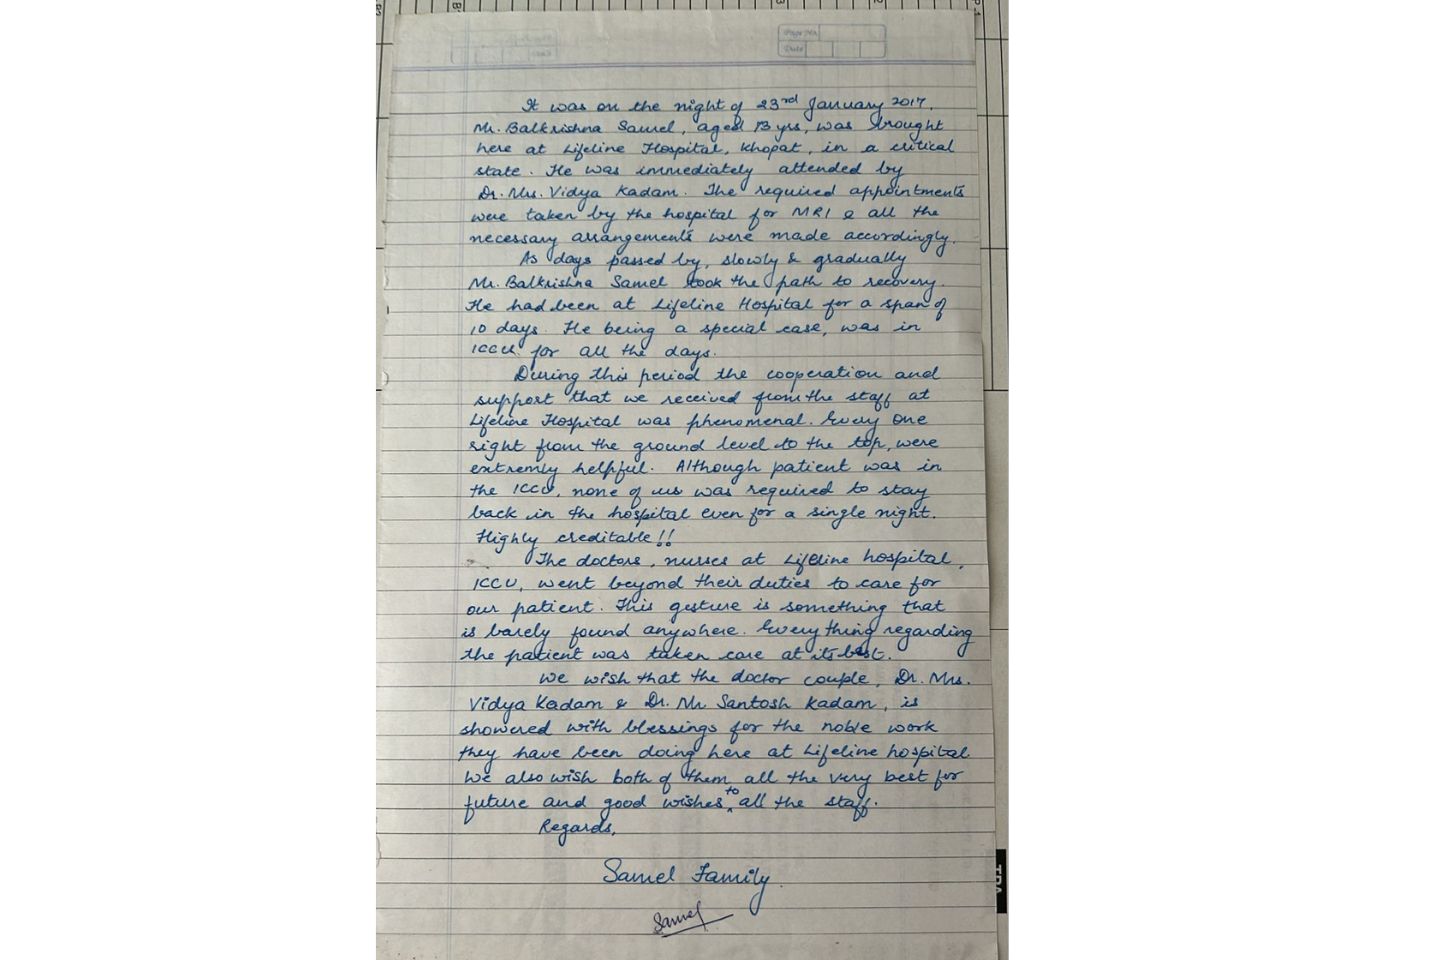 Page No.
Date
It was on the night of 23rd January 2017,
Mr. Balkrishna Samel, aged 73 yrs, was brought
here at Lifeline Hospital, Khopat, in a critical
state. He was immediately attended by
Dr. Mrs. Vidya Kadam. The required appointments
were taken by the hospital for MRI & all the
necessary arrangements were made accordingly.
As days passed by, slowly & gradually
Mr. Balkrishna Samel took the path to recovery.
He had been at Lifeline Hospital for a span of
10 days. He being a special case, was in
ICCU for all the days.
During this period the cooperation and
support that we received from the staff at
Lifeline Hospital was phenomenal. Every one
right from the ground level to the top, were
extremly helpful. Although patient was in
the ICCU, none of us was required to stay
back in the hospital even for a single night.
Highly creditable!!
The doctors, nurses at Lifeline hospital,
ICCU, went beyond their duties to care for
our patient. This gesture is something that
is barely found anywhere. Everything regarding
the patient was taken care at its best.
We wish that the doctor couple, Dr. Mrs.
Vidya Kadam & Dr. Mr Santosh Kadam, is
showered with blessings for the noble work
they have been doing here at Lifeline hospital
We also wish both of them all the very best for
future and good wishes to all the staff.
Regards,
Samel Family.
Samel